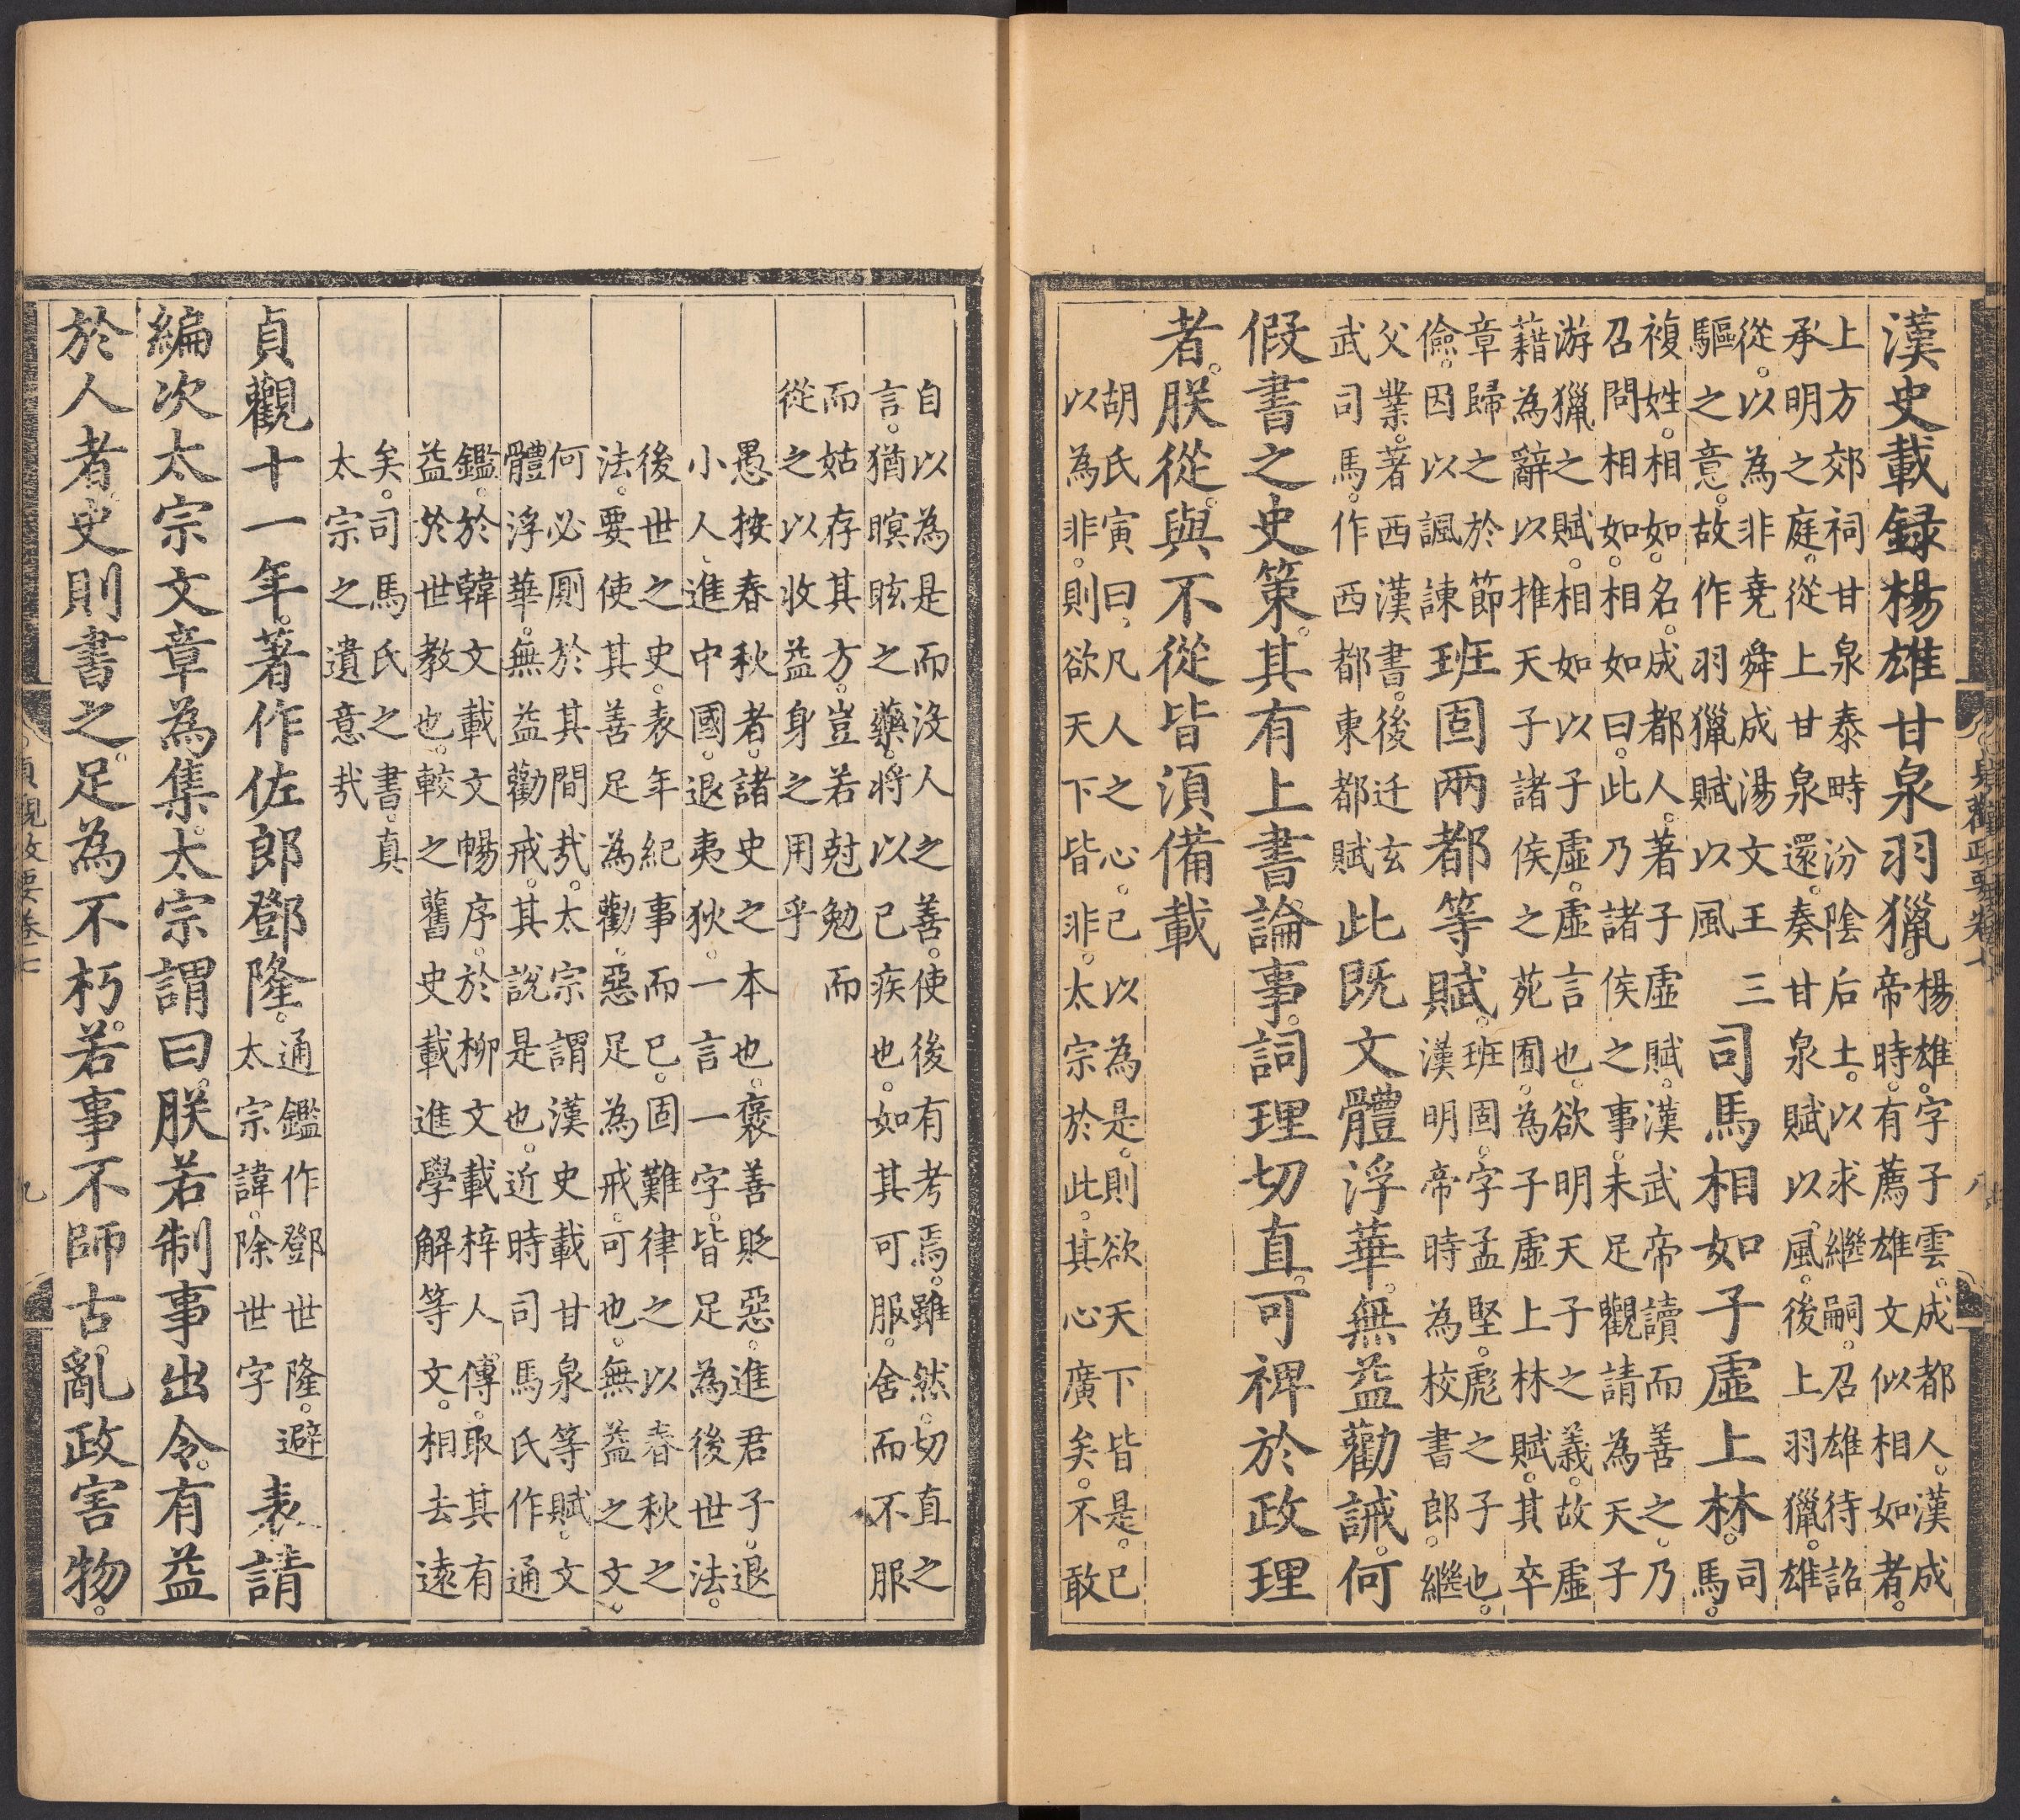 漢史載録楊雄甘泉羽獵。楊雄。字子雲。成都人。漢成帝時。有薦雄文似相如者。
上方郊祠甘泉泰畤汾陰后土。以求繼嗣。召雄待詔
承明之庭。從上甘泉還。奏甘泉賦以風。後上羽獵。雄
從。以為非堯舜成湯文王三驅之意。故作羽獵賦以風司馬相如子虛上林。司馬。
複姓。相如。名。成都人。著子虛賦。漢武帝讀而善之。乃
召問相如。相如曰。此乃諸侯之事。未足觀請為天子
游獵之賦。相如以子虛。虛言也。欲明天子之義。故虛
藉為辭以推天子諸侯之苑囿。為子虛上林賦。其卒
章歸之於節儉。因以諷諫班固兩都等賦。班固。字孟堅。彪之子也。漢明帝時為校書郎。繼
父業。著西漢書。後迁玄武司馬。作西都東都賦此既文體浮華。無益勸誡。何
假書之史策。其有上書論事。詞理切直。可裨於政理
者。朕從。與不從皆須備載
胡氏寅曰。凡人之心。己以為是。則欲天下皆是。己
以為非。則欲天下皆非。太宗於此。其心廣矣。不敢
自以為是而沒人之善。使後有考焉。雖然。切直之
言。猶瞑眩之藥。將以已疾也。如其可服。舍而不服
而姑存其方。豈若尅勉而
從之以收益身之用乎
愚按春秋者。諸史之本也。褒善貶惡。進君子。退
小人、進中國。退夷狄。一言一字。皆足為後世法。
後世之史。表年紀事而已。固難律之以春秋之
法。要使其善足為勸。惡足為戒。可也。無益之文。
何必厠於其間哉。太宗謂漢史載甘泉等賦。文
體浮華。無益勸戒。其說是也。近時司馬氏作通
鑑。於韓文載文暢序。於柳文載梓人傳。取其有
益於世教也。較之舊史載進學解等文。相去遠
矣。司馬氏之書。真
太宗之遺意哉
貞觀十一年。著作佐郎鄧隆。通鑑作鄧世隆。避太宗諱。除世字表請
編次太宗文章為集。太宗謂曰。朕若制事出令。有益
於人者。史則書之。足為不朽。若事不師古。亂政害物。
貞觀政要卷七
九